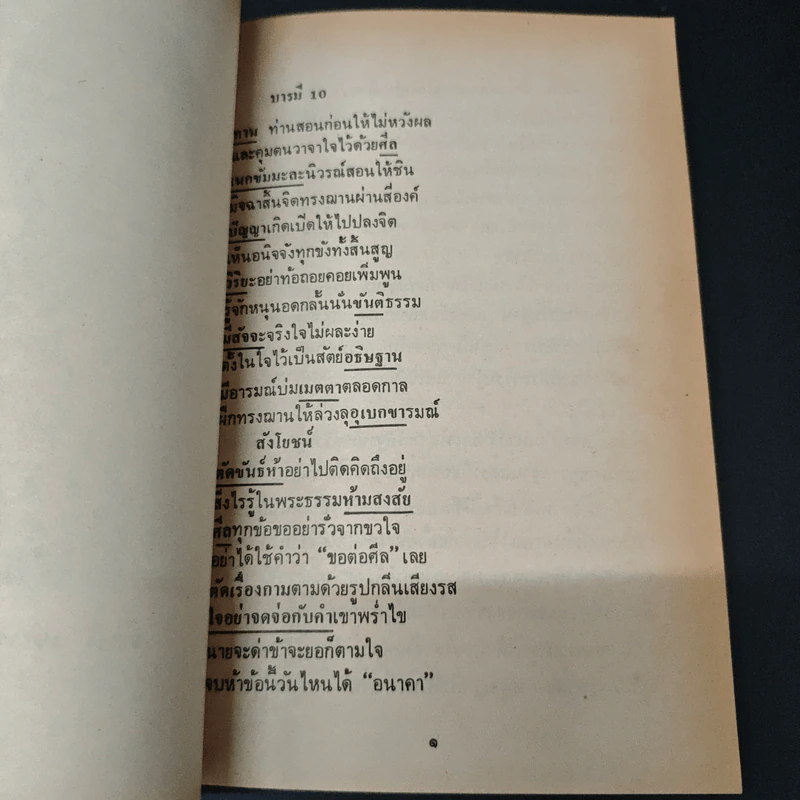 บารมี 10
ทาน ท่านสอนก่อนให้ไม่หวังผล
และคุมตนวาจาใจไว้ด้วยศีล
เนกขัมมะละนิวรณ์สอนให้ชิน
มิจฉาสิ้นจิตทรงฌานผ่านสี่องค์
ปัญญาเกิดเบิดให้ไปปลงจิต
เห็นอนิจจังทุกขังทั้งสิ้นสูญ
วิริยะอย่าท้อถอยคอยเพิ่มพูน
รู้จักหนุนอดกลั้นนั่นขันติธรรม
มีสัจจะจริงใจไม่ผละง่าย
ตั้งในใจไว้เป็นสัตย์อธิษฐาน
มีอารมณ์บ่มเมตตาตลอดกาล
ฝึกทรงฌานให้ล่วงลุอุเบกขารมณ์
สังโยชน์
ตัดขันธ์ห้าอย่าไปติดคิดถึงอยู่
สิ่งไรรู้ในพระธรรมห้ามสงสัย
ศีลทุกข้อขออย่ารั่วจากขวใจ
อย่าได้ใช้คำว่า “ขอต่อศีล” เลย
ตัดเรื่องกามตามด้วยรูปกลิ่นเสียงรส
ใจอย่าจดจ่อกับคำเขาพร่ำไข
นายจะด่าข้าจะยอก็ตามใจ
จบห้าข้อนี้วันไหนได้ “อนาคา”
๑